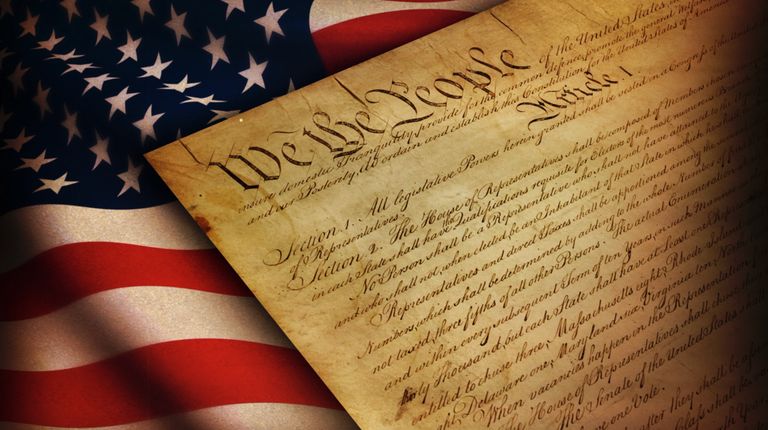 We the People
of the United States
insure domestic Tranquility, provide for the common defence, promote the general Welfare
and our Posterity, do ordain and establish this Constitution for the United States of America
Article I
Section 1. All legislative Powers herein granted shall be vested in a Congress of the United
of Representatives.
Section 2. The House of Representatives shall be composed of Members chosen
in each State shall have the Qualifications requisite for Electors of the most numerous Branch
No Person shall be a Representative who shall not have attained to the Age
and who shall not, when elected, be an Inhabitant of that State in which he shall
Representatives and direct Taxes shall be apportioned among the
Numbers, which shall be determined by adding to the whole Number of
not taxed, three fifths of all other Persons. The actual Enumeration
and within every subsequent Term of ten Years, in such Manner
thirty Thousand, but each State shall have at Least one
entitled to chuse three, Massachusetts eight, Rhode Island
eight, Delaware one, Maryland six, Virginia ten, North
When vacancies happen in the Representation
The House of Representatives shall chuse
The Senate of the United States shall
have one Vote.
after they shall be